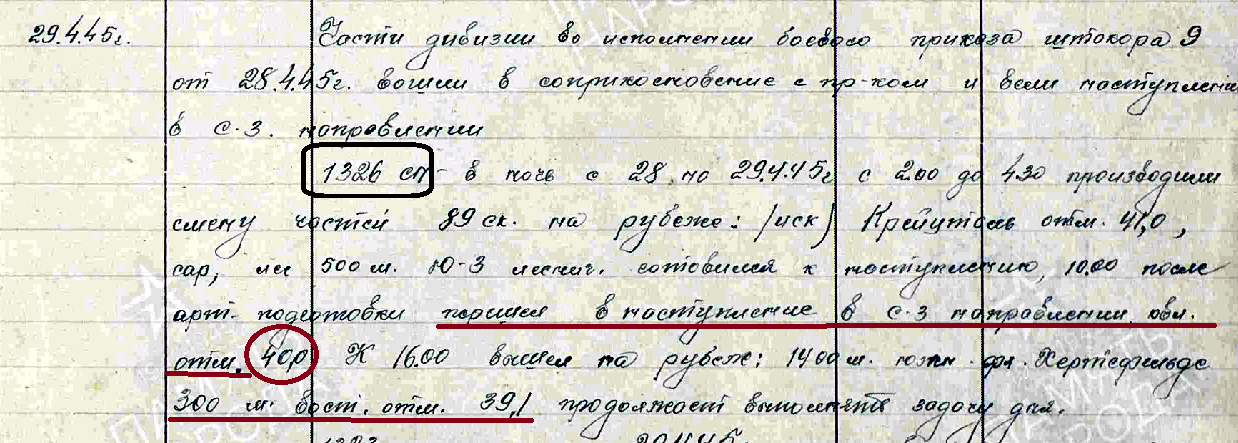 29.4.45г. Части дивизии во исполнении боевого приказа штакора 9
от 28.4.45г. вошли в соприкосновение с пр-ком и вели наступление
в с.-з. направлении
1326 сп - в ночь с 28 на 29.4.45г с 2.00 до 4.30 производили
смену частей 89 ск. на рубеже: /иск/ Крейуталь отм. 41,0,
сар, лес 500 м. Ю-З леснич. готовился к наступлению, 10.00 после
арт. подготовки перешел в наступление в с-з направлении овл.
отм. 40,0 К 16.00 вышел на рубеж: 1400 м. южн. фл. Хертефельде
300 м. вост. отм. 39,1 продолжает выполнять задачу дня.